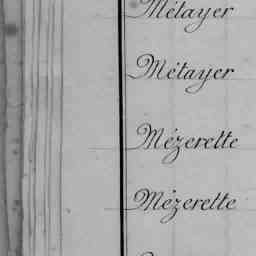 Métayer
Métayer
Mézerette
Mézerette